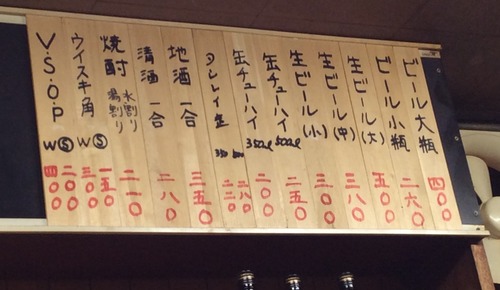 ビール大瓶 四〇〇
ビール小瓶 二六〇
生ビール(大) 五〇〇
生ビール(中) 三八〇
生ビール(小) 三〇〇
缶チューハイ 500ml 二五〇
缶チューハイ 350ml 二〇〇
500 二八〇
350 二二〇
地酒 一合 三五〇
清酒 一合 二八〇
焼酎 水割り 湯割り 二一〇
ウイスキ角 Ⓢ 一五〇
W 三〇〇
V.S.O.P Ⓢ 二〇〇
W 四〇〇